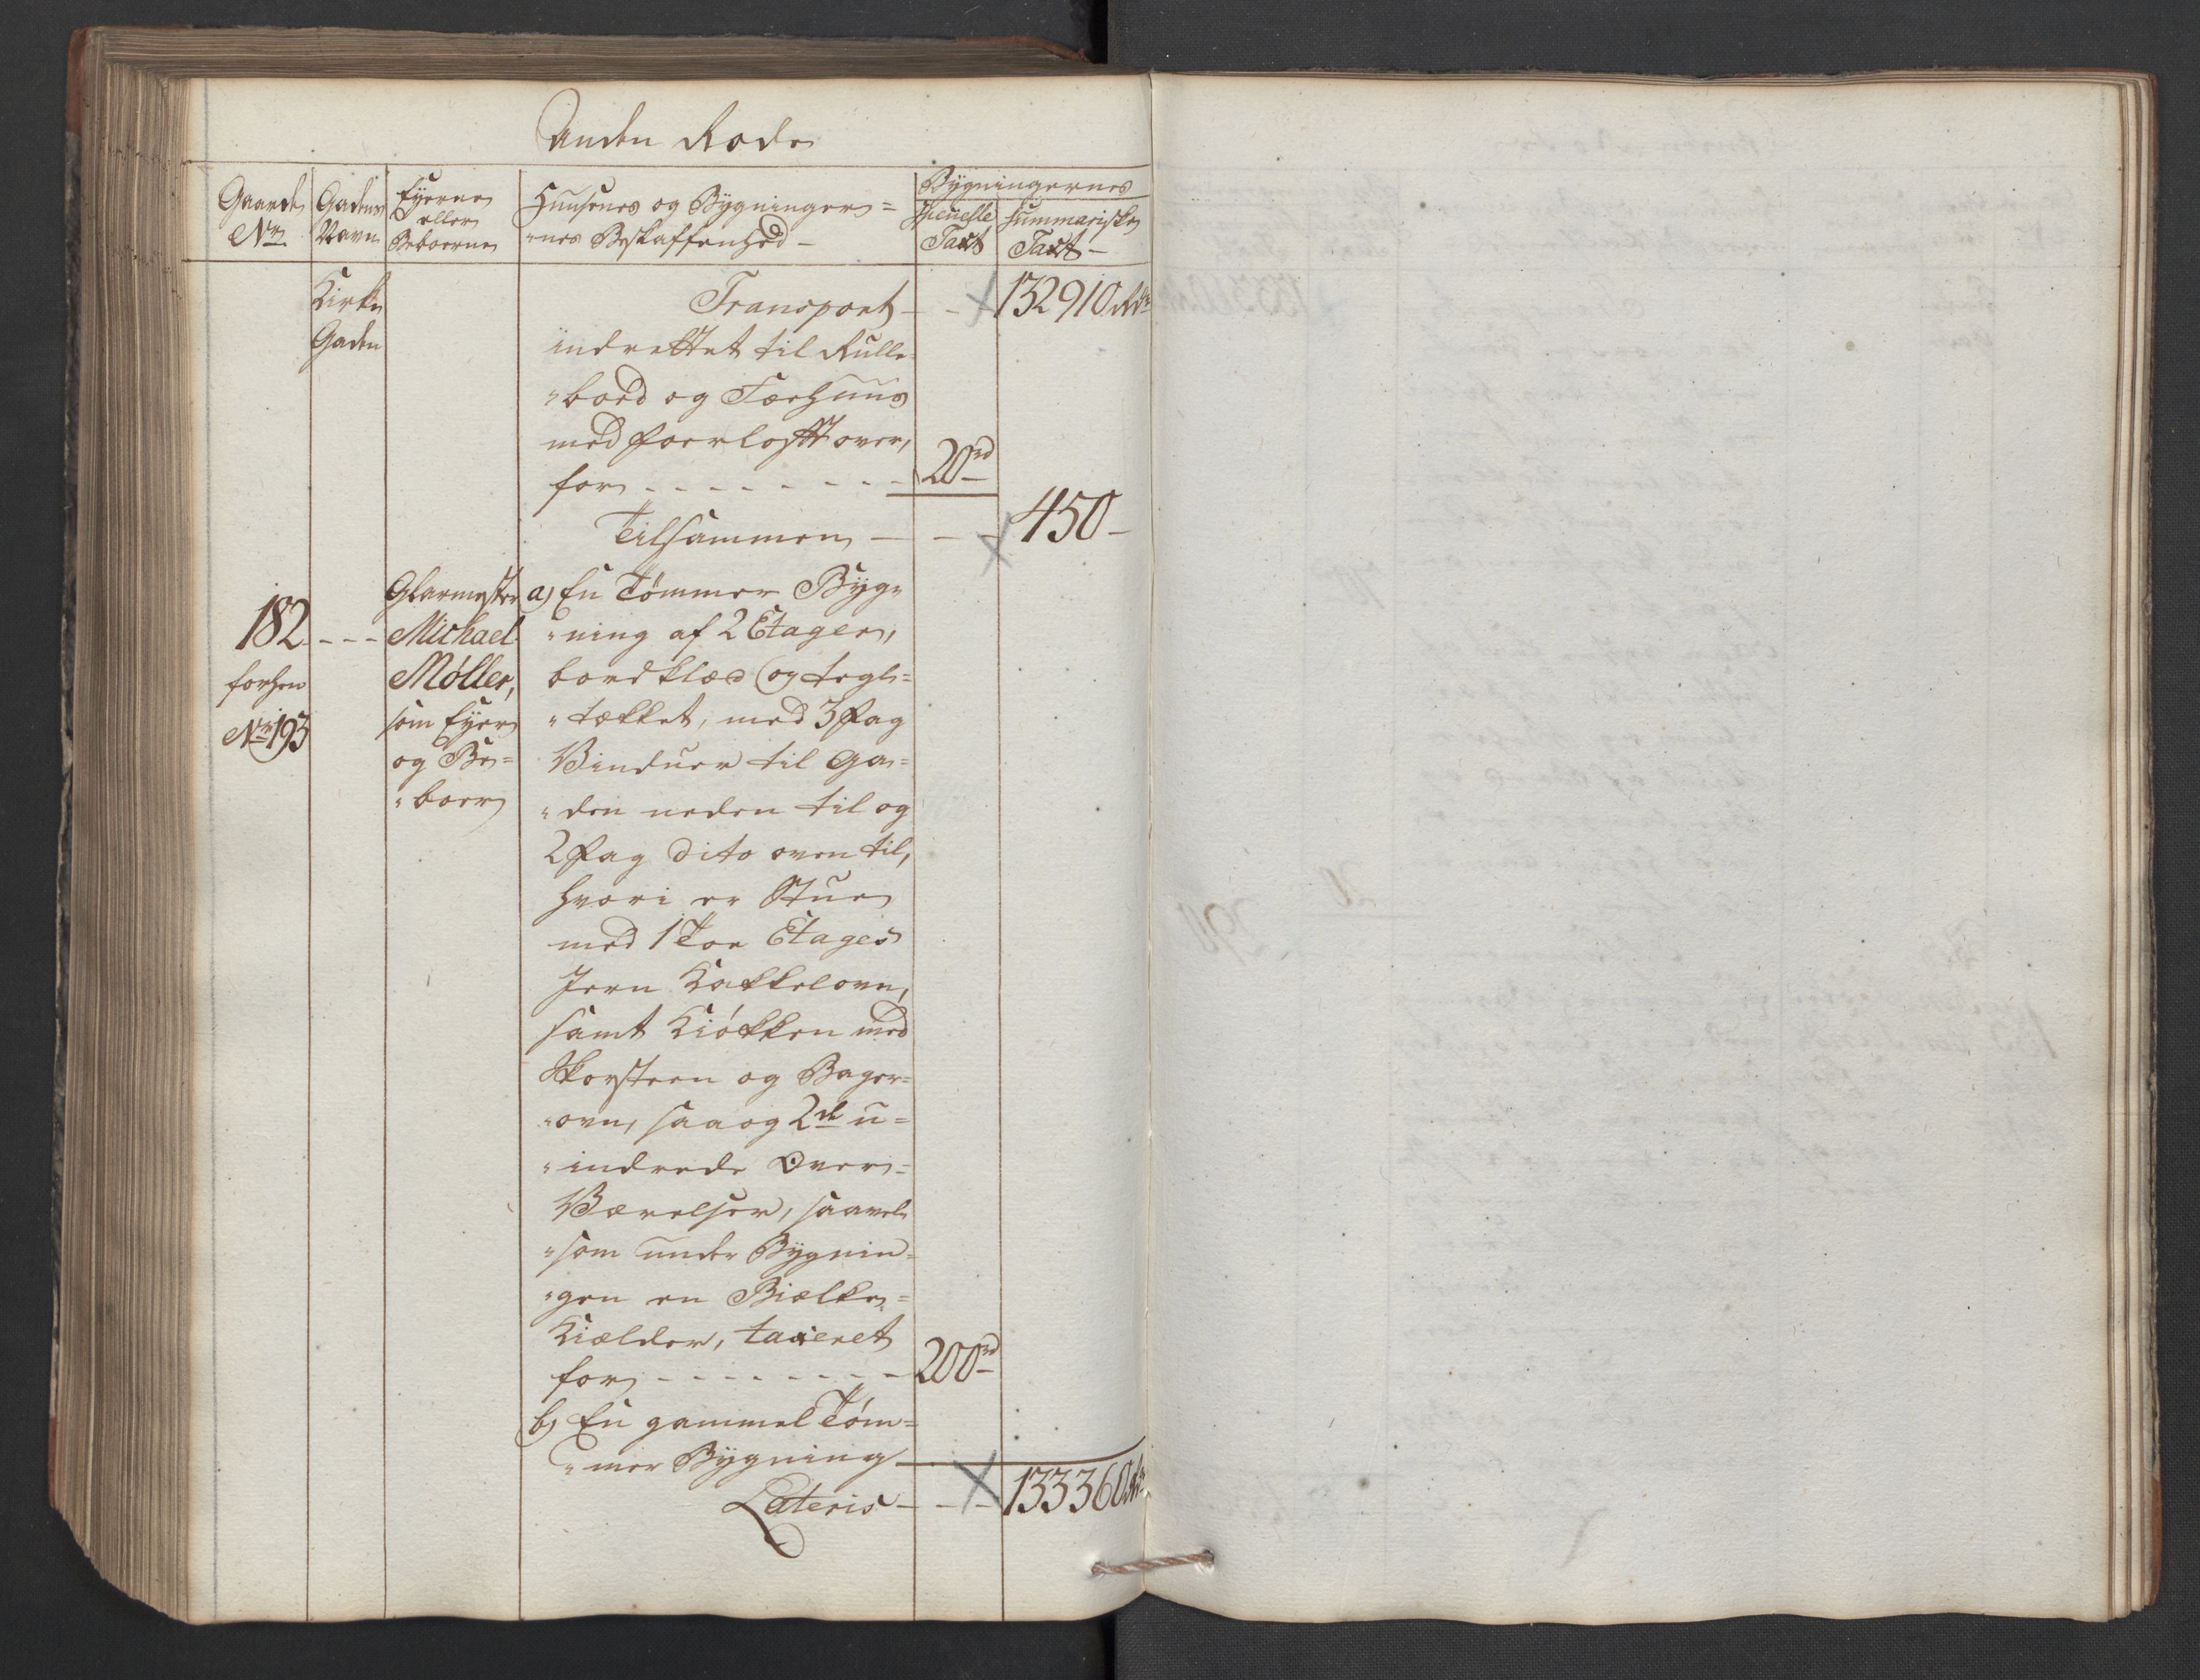 Anden Rode
Gaardens
No.
Gadens
Navn
Eyerne
eller
Beboerne
Huusenes og Bygninger=
"nes Beskaffenhed -
Bygningernes
Specielle
Taxt
Summariske
Taxt -
Kirke
Gaden
Transport - - 132910 Rdr
indrettet til Rulle-
"bord og Tørhuus
med Foerlofft over,
for - - - - - - - - 20rd
Tilsammen - - - 450 -
182 - - -
forhen
No. 193
Glarmester
Michael
Møller,
som Eyer
og Be=
"boer
a) En Tømmer Byg=
"ning af 2 Etager,
bordklæd og tegl=
"tækket, med 3 Fag
Vinduer til Ga=
"den neden til og
2 Fag dito oven til,
hvori er Stue
med 1 Toe Etages
Jern Kakkelovn,
samt Kiøkken med
Skorsteen og Bager=
"ovn, saa og 2de u=
"indrede Over=
Værelser, saavel
"som under Bygnin=
"gen en Bielke=
Kielder, taxeret
for - - - - - - - - 200rd
b) En gammel Tøm=
"mer Bygning
Lateris - - - 133360 Rdr